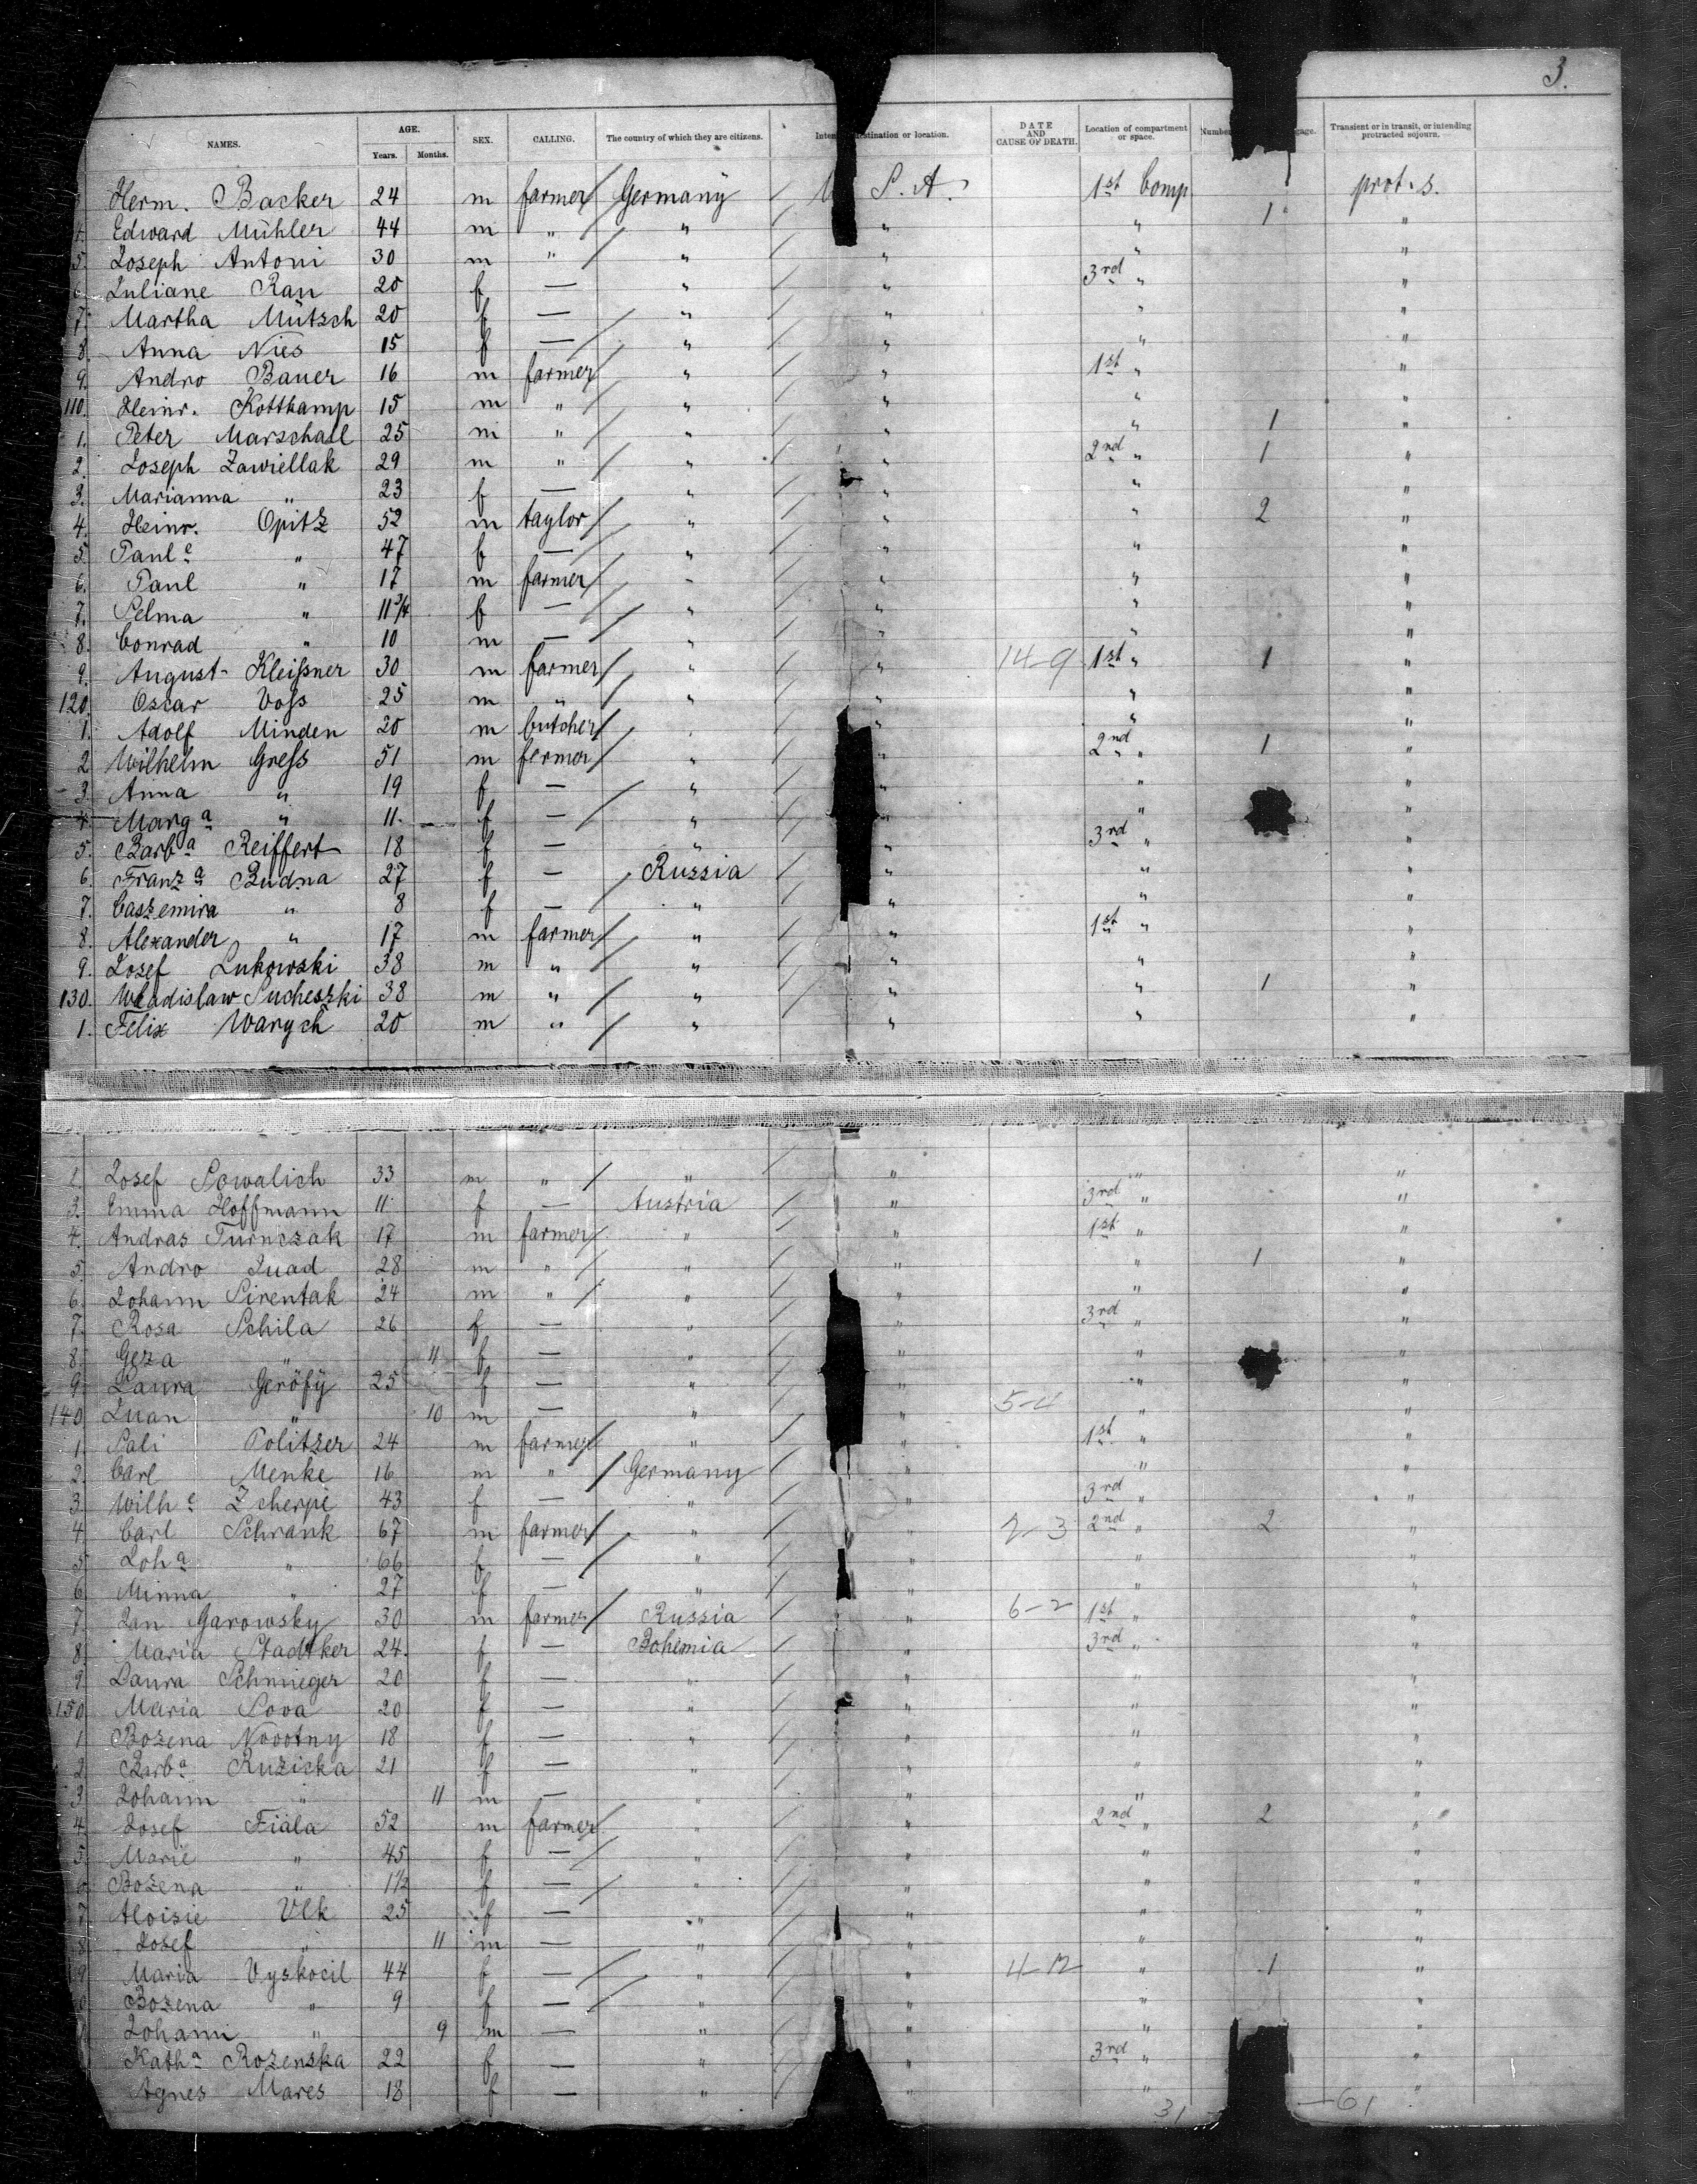 3.
NAMES. AGE. Years. Months. SEX. CALLING. The country of which they are citizens. destination or location. DATE AND CAUSE OF DEATH. Location of compartment or space. Number Transient or in transit, or intending protracted sojourn.
Herm. Backer 24 m farmer Germany S. A. 1st Comp. prot. s.
4. Edward Mühler 44 m " " " " 1 "
5. Joseph Antoni 30 m " " " " "
6. Juliane Rau 20 f — " " 3rd " "
7. Martha Mütsch 20 f — " " " "
8. Anna Nies 15 f — " " " "
9. Andro Bauer 16 m farmer " " 1st " "
110. Heinr. Kottkamp 15 m " " " " "
1. Peter Marschall 25 m " " " " 1 "
2. Joseph Zawiellak 29 m " " " 2nd " 1 "
3. Marianna " 23 f — " " " "
4. Heinr. Opitz 52 m taylor " " " 2 "
5. Paule " 47 f — " " " "
6. Paul " 17 m farmer " " " "
7. Selma " 11 3/4 f — " " " "
8. Conrad " 10 m — " " " "
9. August Kleißner 30 m farmer " " 14-9 1st " 1 "
120 Oscar Voß 25 m " " " " "
1. Adolf Minden 20 m butcher " " " "
2 Wilhelm Greß 51 m fermer " " 2nd " 1 "
3. Anna " 19 f — " " " "
4. Marga " 11. — f — " " " "
5. Barba Reiffert 18 f — " " 3rd " "
6. Franza Budna 27 f — Russia " " "
7. Caszemira " 8 f — " " " "
8. Alexander " 17 m farmer " " 1st " "
9. Josef Lukowski 38 m " " " " "
130. Wladislaw Sucheszki 38 m " " " " 1 "
1. Felix Warych 20 m " " " " "
2. Josef Sowalich 33 m " " " " "
3. Emma Hoffmann 11 f — Austria " 3rd " "
4. Andras Turnczak 17 m farmer " " 1st " "
5. Andro Juad 28 m " " " " 1 "
6. Johann Sirentak 24 m " " " " "
7. Rosa Schila 26 f — " " 3rd " "
8. Geza " 11 f — " " " "
9. Laura Geröfÿ 25 f — " " " "
140 Juan " 10 m — " " 5-4 " "
1. Sali Politzer 24 m farmer " " 1st " "
2. Carl Menke 16 m " Germany " " "
3. Wilhe Zscherpe 43 f — " " 3rd " "
4 Carl Schrank 67 m farmer " " 7-3 2nd " 2 "
5 Joha " 66 f — " " " "
6 Minna " 27 f — " " " "
7. Jan Garowsky 30 m farmer Russia " 6-2 1st " "
8. Maria Stadtker 24. f — Bohemia " 3rd " "
9. Laura Schmieger 20 f — " " " "
150 Maria Sova 20 f — " " " "
1 Bozena Novotny 18 f — " " " "
2 Barba Ruzicka 21 f — " " " "
3 Johann " 11 m — " " " "
4. Josef Fiala 52 m farmer " " 2nd " 2 "
5. Marie " 45 f — " " " "
6. Bozena " 1 1/2 f — " " " "
7 Aloisie Vlk 25 f — " " " "
8 Josef " 11 m — " " " "
9 Maria Vyskocil 44 f — " " 4-12 " 1 "
0 Bozena " 9 f — " " " "
Johann " 9 m — " " " "
Katha Rozenska 22 f — " " 3rd " "
Agnes Mares 18 f — " " " "
31 — 61